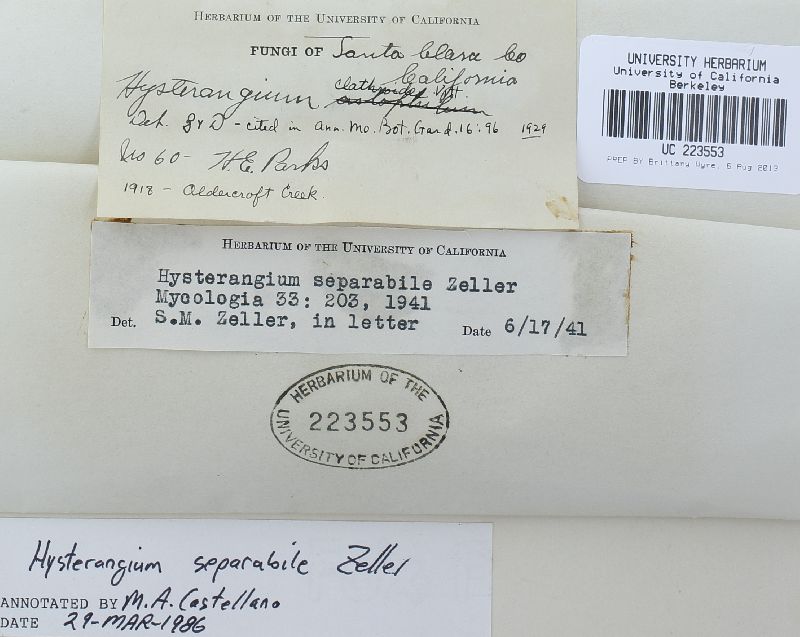 HERBARIUM OF THE UNIVERSITY OF CALIFORNIA
FUNGI OF Santa Clara Co
California
clathroides Vitt.
Hysterangium
Det. Z & D - cited in Ann. Mo. Bot. Gard. 16:96 1929
No 60 - H.E. Parks
1918 - Aldercroft Creek.
UNIVERSITY HERBARIUM
University of California
Berkeley
UC 223553
PREP BY Brittany Wyre, 5 Aug 2013
HERBARIUM OF THE UNIVERSITY OF CALIFORNIA
Hysterangium separabile Zeller
Mycologia 33: 203, 1941
Det. S.M. Zeller, in letter Date 6/17/41
HERBARIUM OF THE
223553
UNIVERSITY OF CALIFORNIA
Hysterangium separabile Zeller
ANNOTATED BY M.A. Castellano
DATE 29-MAR-1986